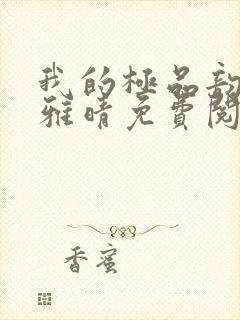 我的極品
雅晴免費閱
香蜜